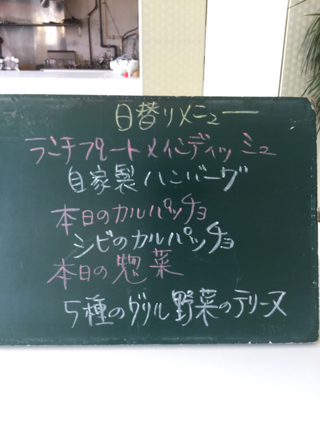 日替りメニュー
ランチプレートメインディッシュ
自家製ハンバーグ
本日のカルパッチョ
シビのカルパッチョ
本日の惣菜
5種のグリル野菜のテリーヌ